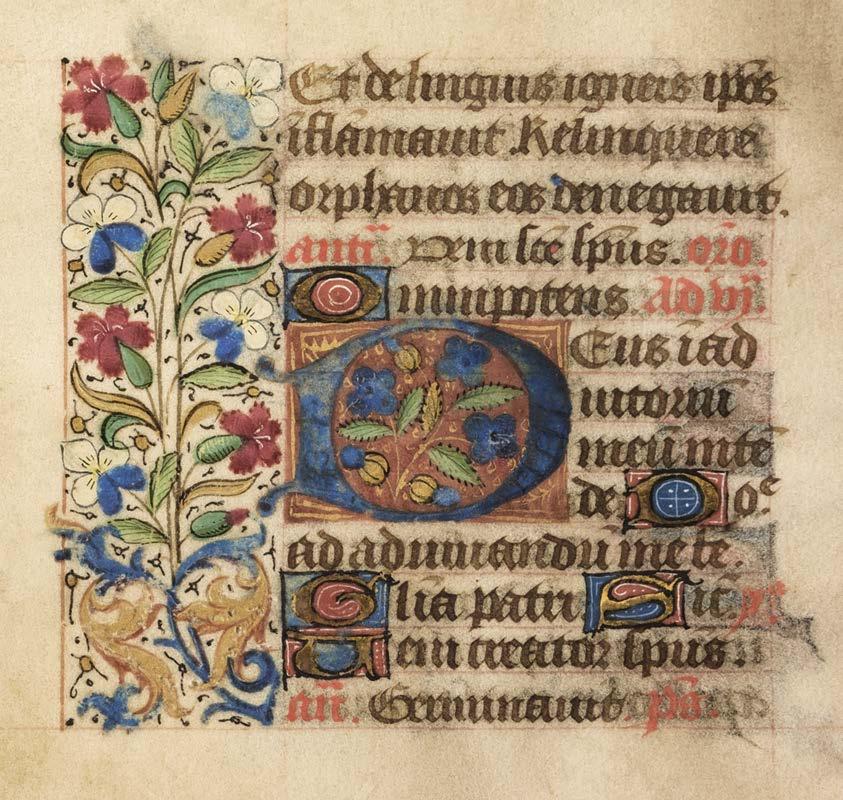 Et de linguis igneis ip̄os
īflamauit. Relinquere
orphanos eos denegauit.
anti. Veni sc̄e sp̄us. oro.
Omnipotens. Ad vj.
Deus ī ad
iutoriū
meū inte
de Do.
ad adiuuandū me fe.
Gl̄ia patri Sic̄
Veni creator sp̄us.
an̄. Germinauit. ps.